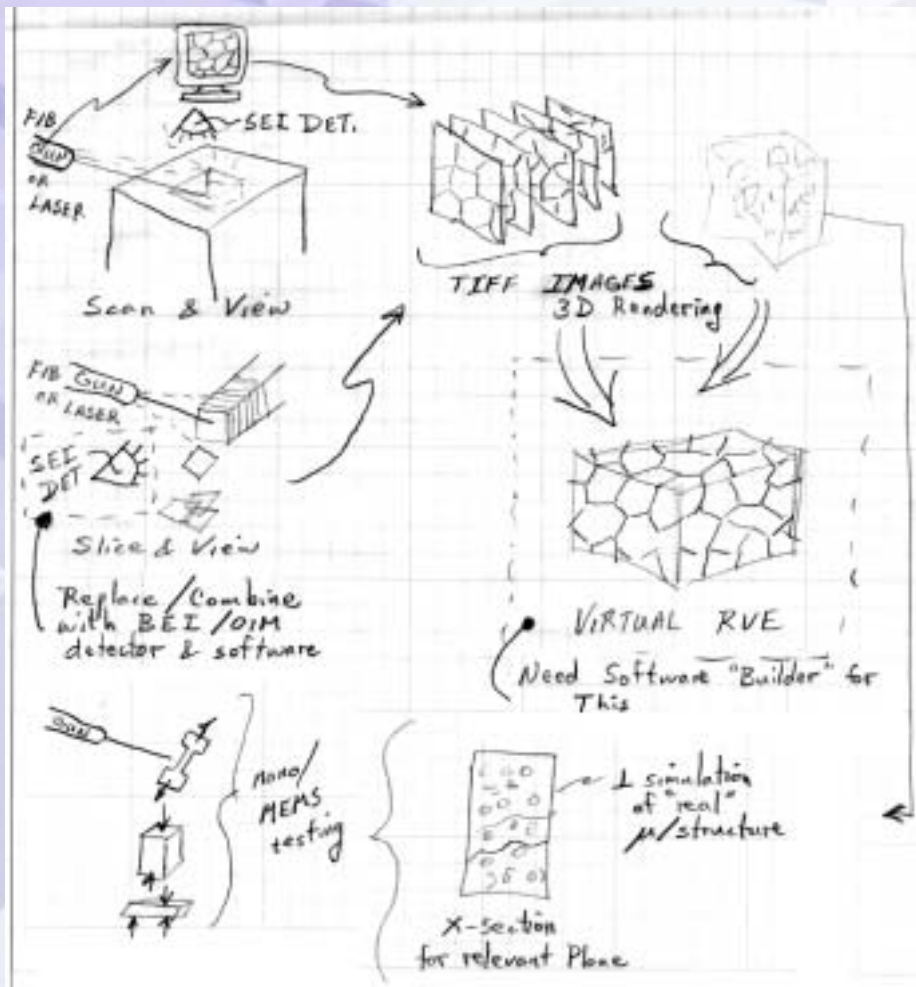 FIB
GUN
OR
LASER
SEI DET.
Scan & View
TIFF IMAGES
3D Rendering
FIB GUN
OR LASER
SEI
DET
Slice & View
Replace/Combine
with BEI/OIM
detector & software
VIRTUAL RVE
Need Software "Builder" for
This
GUN
nano/
MEMS
testing
⊥ simulation
of "real"
μ/structure
X-section
for relevant Plane